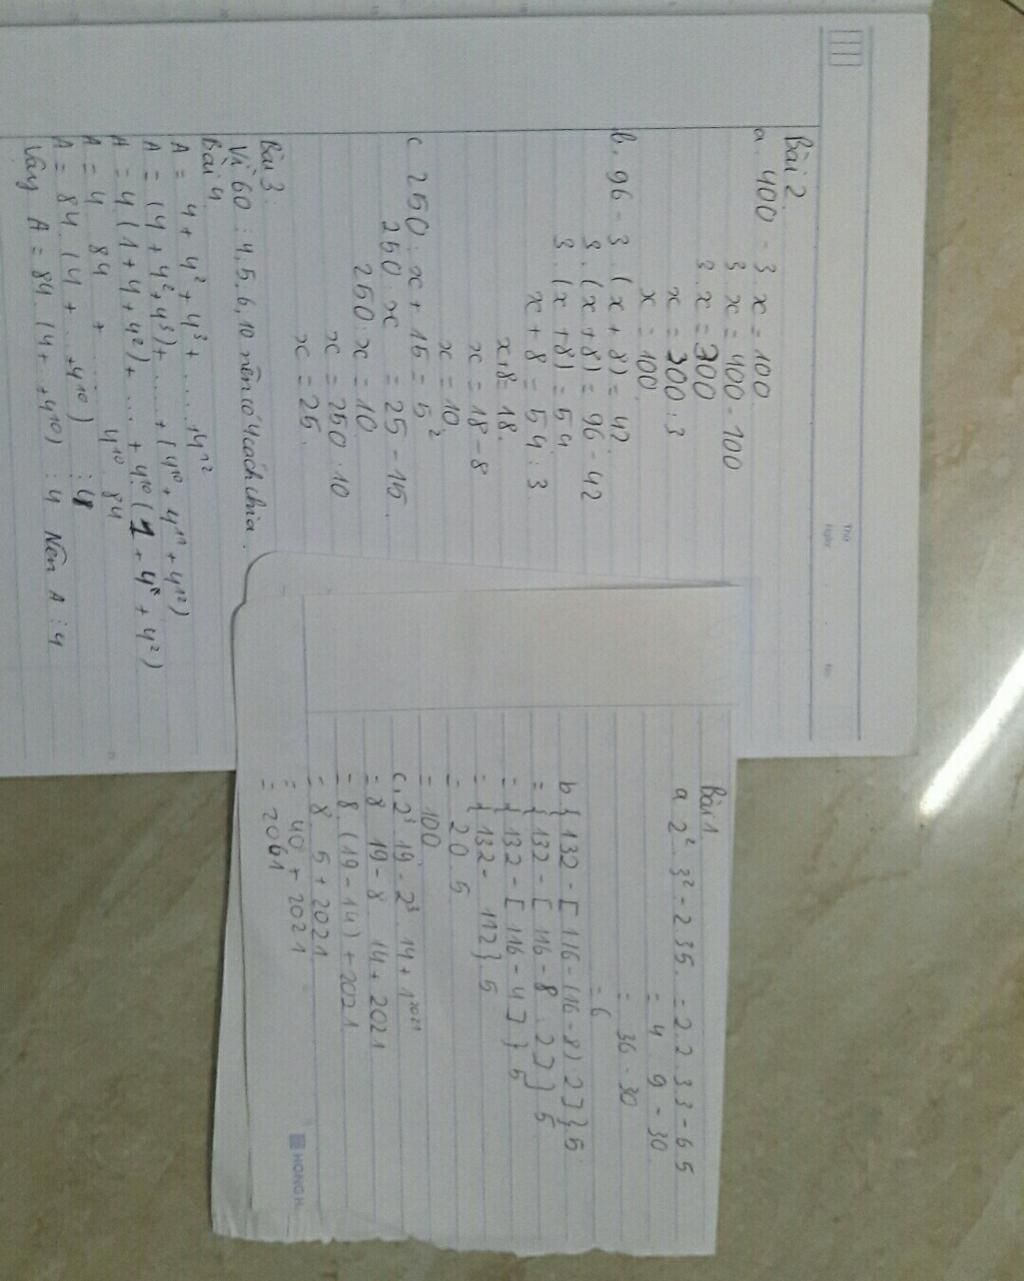 Thứ
Ngày
No.
Bài 2.
a. 400 - 3. x = 100
3 x = 400 - 100
3. x = 300
x = 300 : 3
x = 100.
b. 96 - 3. (x + 8) = 42.
3. (x + 8) = 96 - 42
3. (x + 8) = 54
x + 8 = 54 : 3
x + 8 = 18.
x = 18 - 8
x = 10.
c 250 : x + 15 = 5²
250 : x = 25 - 15.
250 : x = 10
x = 250 : 10
x = 25.
Bài 3.
Vì 60 : 4, 5, 6, 10 nên có 4 cách chia.
Bài 4
A = 4 + 4² + 4³ + ... + 4¹²
A = (4 + 4² + 4³) + ..... + (4¹⁰ + 4¹¹ + 4¹²)
A = 4 (1 + 4 + 4²) + ... + 4¹⁰ (1 + 4 + 4²)
A = 4 84 + ..... 4¹⁰ 84
A = 84 (4 + ... + 4¹⁰) : 4
Vậy A = 84. (4 + .. + 4¹⁰) : 4 Nên A : 4
Bài 1
a 2² 3² - 2 35. = 2.2.33 - 6 5
= 4 9 - 30.
= 36 - 30
= 6
b {132 - [116 - (16 - 8) 2]} 5.
= {132 - [116 - 8. 2]} 5
= {132 - [116 - 4]} 5
= {132 - 112}. 5
= 20 5
= 100
c, 2³ 19 - 2³ 14 + 1²⁰²¹
= 8 19 - 8 14 + 2021
= 8 (19 - 14) + 2021
= 8 5 + 2021
= 40 + 2021
= 2061
HONG H